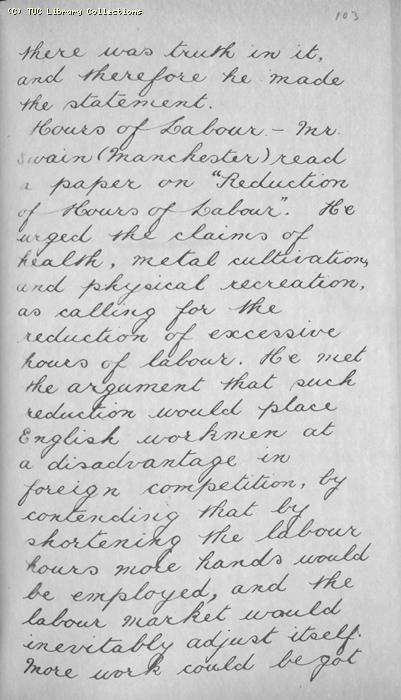 (C) TUC Library Collections
103
there was truth in it,
and therefore he made
the statement.
Hours of Labour - Mr.
Swain (Manchester) read
a paper on "Reduction
of Hours of Labour". He
urged the claims of
health, metal cultivation,
and physical recreation,
as calling for the
reduction of excessive
hours of labour. He met
the argument that such
reduction would place
English workmen at
a disadvantage in
foreign competition, by
contending that by
shortening the labour
hours more hands would
be employed, and the
labour market would
inevitably adjust itself.
More work could be got